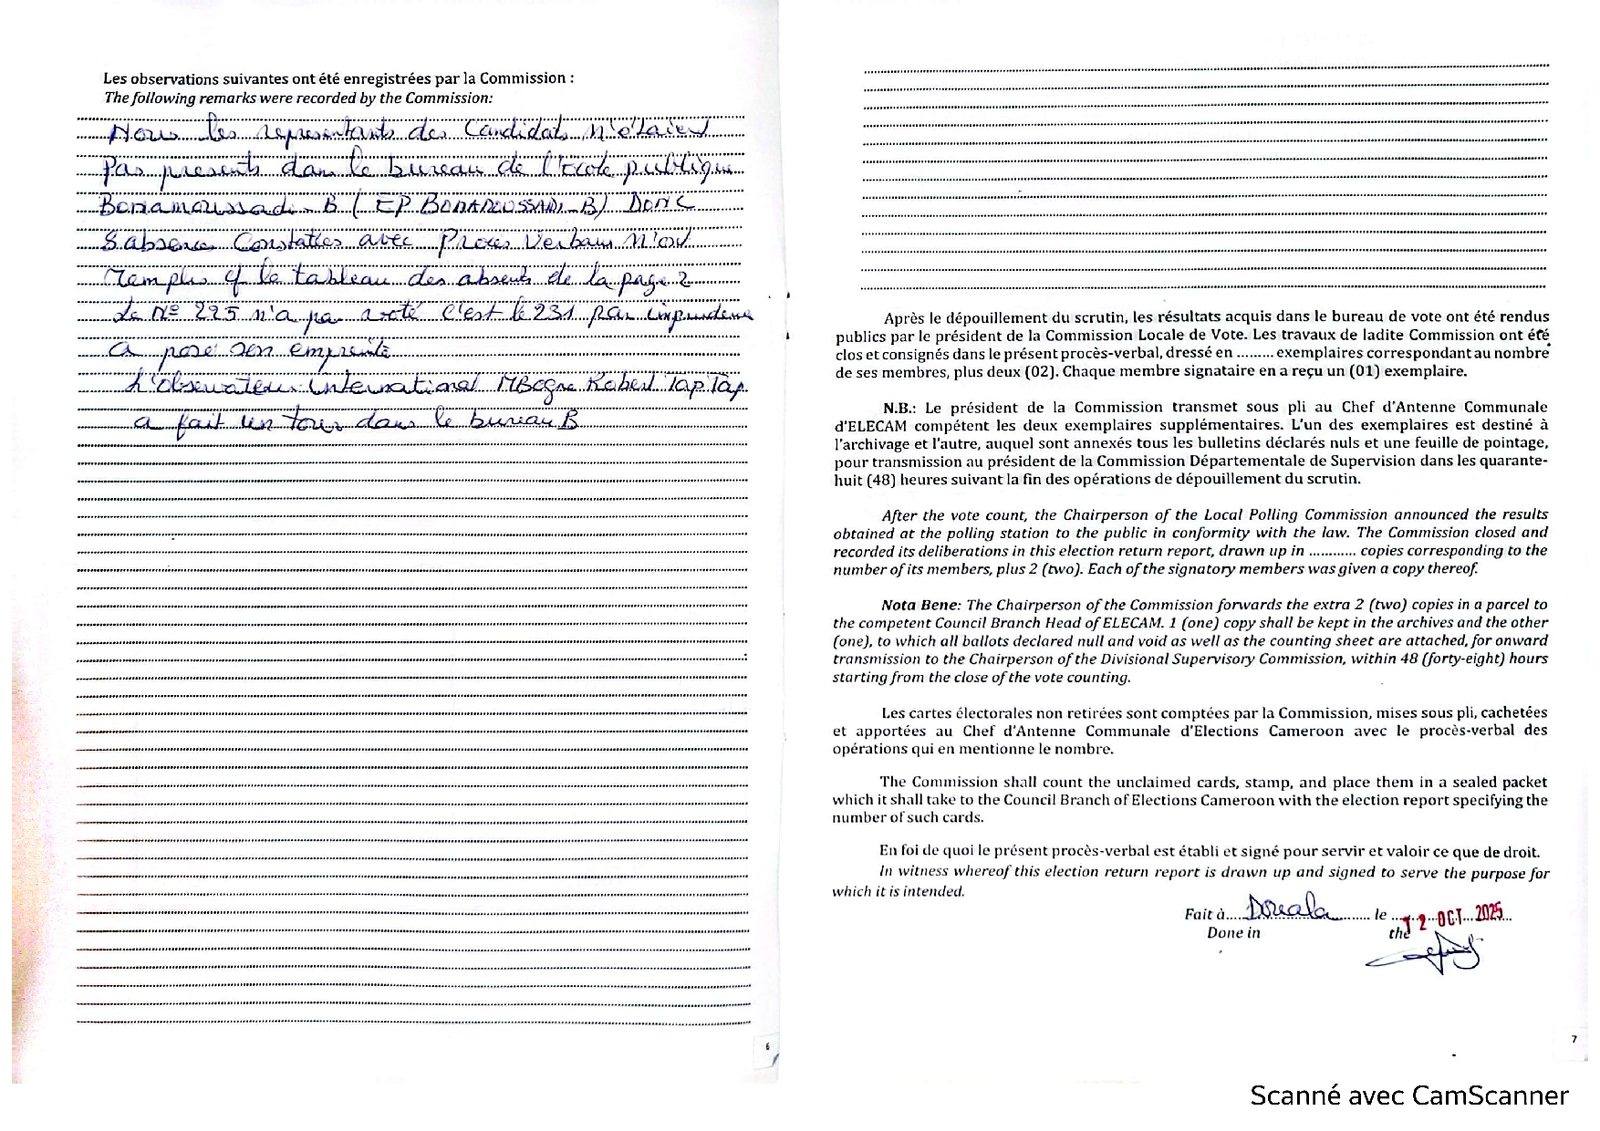 Les observations suivantes ont été enregistrées par la Commission :
The following remarks were recorded by the Commission:
Nous les representants des Candidats n'étaient
Pas presents dans le bureau de l'Ecole publique
Bonamoussadi B ( EP BONAMOUSSADI_B) DONC
Constatées avec Proces Verbaux N'ont
Remplis le tableau des absents de la page 2
Le N° 225 n'a pas voté c'est le 231 par imprudence
a posé son empreinte
L'Observateur International MBogne Robert Tap Tap.
a fait un tour dans le bureau B
6
Après le dépouillement du scrutin, les résultats acquis dans le bureau de vote ont été rendus
publics par le président de la Commission Locale de Vote. Les travaux de ladite Commission ont été
clos et consignés dans le présent procès-verbal, dressé en ......... exemplaires correspondant au nombre
de ses membres, plus deux (02). Chaque membre signataire en a reçu un (01) exemplaire.
N.B.: Le président de la Commission transmet sous pli au Chef d'Antenne Communale
d'ELECAM compétent les deux exemplaires supplémentaires. L'un des exemplaires est destiné à
l'archivage et l'autre, auquel sont annexés tous les bulletins déclarés nuls et une feuille de pointage,
pour transmission au président de la Commission Départementale de Supervision dans les quarante-
huit (48) heures suivant la fin des opérations de dépouillement du scrutin.
After the vote count, the Chairperson of the Local Polling Commission announced the results
obtained at the polling station to the public in conformity with the law. The Commission closed and
recorded its deliberations in this election return report, drawn up in ............ copies corresponding to the
number of its members, plus 2 (two). Each of the signatory members was given a copy thereof.
Nota Bene: The Chairperson of the Commission forwards the extra 2 (two) copies in a parcel to
the competent Council Branch Head of ELECAM. 1 (one) copy shall be kept in the archives and the other
(one), to which all ballots declared null and void as well as the counting sheet are attached, for onward
transmission to the Chairperson of the Divisional Supervisory Commission, within 48 (forty-eight) hours
starting from the close of the vote counting.
Les cartes électorales non retirées sont comptées par la Commission, mises sous pli, cachetées
et apportées au Chef d'Antenne Communale d'Elections Cameroon avec le procès-verbal des
opérations qui en mentionne le nombre.
The Commission shall count the unclaimed cards, stamp, and place them in a sealed packet
which it shall take to the Council Branch of Elections Cameroon with the election report specifying the
number of such cards.
En foi de quoi le présent procès-verbal est établi et signé pour servir et valoir ce que de droit.
In witness whereof this election return report is drawn up and signed to serve the purpose for
which it is intended.
Fait à.... Douala ......... le ... 12 OCT. 2025
Done in the
7
Scanné avec CamScanner